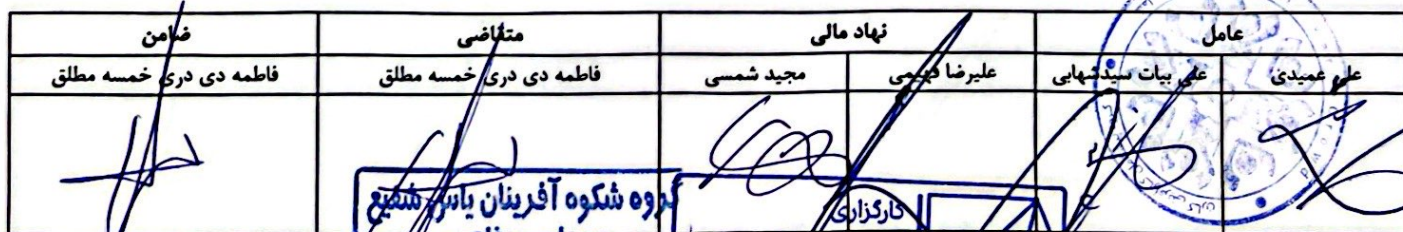 عامل نهاد مالی متقاضی ضامن
علی عمیدی علی بیات سیدشهابی علیرضا فهیمی مجید شمسی فاطمه دی دری خمسه مطلق فاطمه دی دری خمسه مطلق
کارگزاری
گروه شکوه آفرینان یاس شفیع